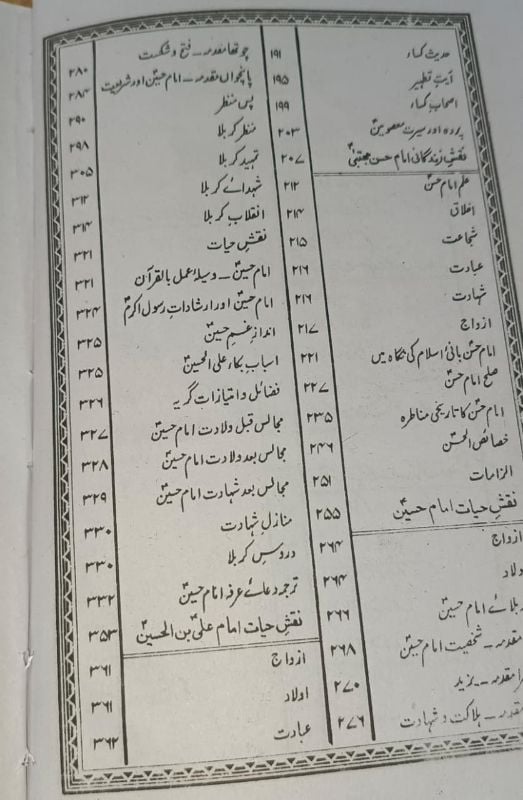 حدیث کساء ۱۹۱
آیت تطہیر ۱۹۵
اصحاب کساء ۱۹۹
پردہ اور سیرت معصومینؑ ۲۰۳
نقش زندگانی امام حسن مجتبیٰؑ ۲۰۷
علم امام حسنؑ ۲۱۲
اخلاق ۲۱۴
شجاعت ۲۱۵
عبادت ۲۱۶
شہادت ۲۱۶
ازواج ۲۱۷
امام حسنؑ بانیٔ اسلام کی نگاہ میں ۲۲۱
صلح امام حسنؑ ۲۲۷
امام حسنؑ کا تاریخی مناظرہ ۲۳۵
خصائص الحسنؑ ۲۴۶
الزامات ۲۵۱
نقش حیات امام حسینؑ ۲۵۵
ازواج ۲۶۴
ولاد ۲۶۴
بلائے امام حسینؑ ۲۶۶
مقدمہ ـ شخصیت امام حسینؑ ۲۶۸
را مقدمہ ـ یزید ۲۷۰
مقدمہ ـ ہلاکت و شہادت ۲۷۶
چوتھا مقدمہ ـ فتح و شکست ۲۸۰
پانچواں مقدمہ ـ امام حسینؑ اور شریعت ۲۸۴
پس منظر ۲۹۰
منظر کربلا ۲۹۸
تمہید کربلا ۳۰۵
شہدائے کربلا ۳۱۲
انقلاب کربلا ۳۱۴
نقش حیات ۳۲۱
امام حسینؑ ـ وسیلۂ عمل بالقرآن ۳۲۱
امام حسینؑ اور ارشادات رسول اکرمؐ ۳۲۴
انداز غم حسینؑ ۳۲۵
اسباب بکاء علی الحسینؑ ۳۲۵
فضائل و امتیازات گریہ ۳۲۶
مجالس قبل ولادت امام حسینؑ ۳۲۷
مجالس بعد ولادت امام حسینؑ ۳۲۸
مجالس بعد شہادت امام حسینؑ ۳۲۹
منازل شہادت ۳۳۰
دروس کربلا ۳۳۰
ترجمہ دعائے عرفہ امام حسینؑ ۳۳۲
نقش حیات امام علیؑ بن الحسینؑ ۳۵۳
ازواج ۳۶۱
اولاد ۳۶۱
عبادت ۳۶۲